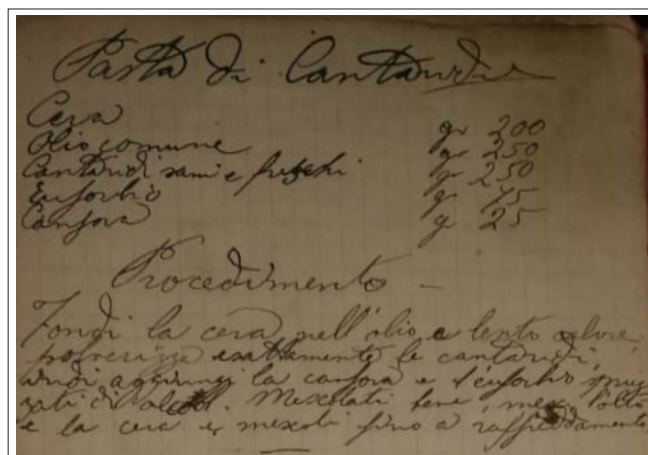 Pasta di Cantaridi
Cera gr 200
Olio comune g 250
Cantaridi sani e freschi g 250
Euforbio g 75
Canfora g 25
Procedimento -
Fondi la cera nell'olio a lento calore
polverizza esattamente le cantaridi,
indi aggiungi la canfora e l'euforbio spruz
zati di alcool. Mescolati bene, l'olio
e la cera e mescoli fino a raffreddamento